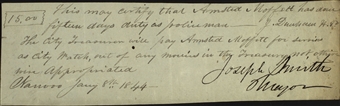 This may certify that Armsted Moffett has done
15.00 fifteen days duty as police man
The City Treasurer will pay Armsted Moffett for service
as City Watch, out of any monies in the Treasury not other
wise Appropriated
Nauvoo Jany 1st 1844
Joseph Smith
Mayor